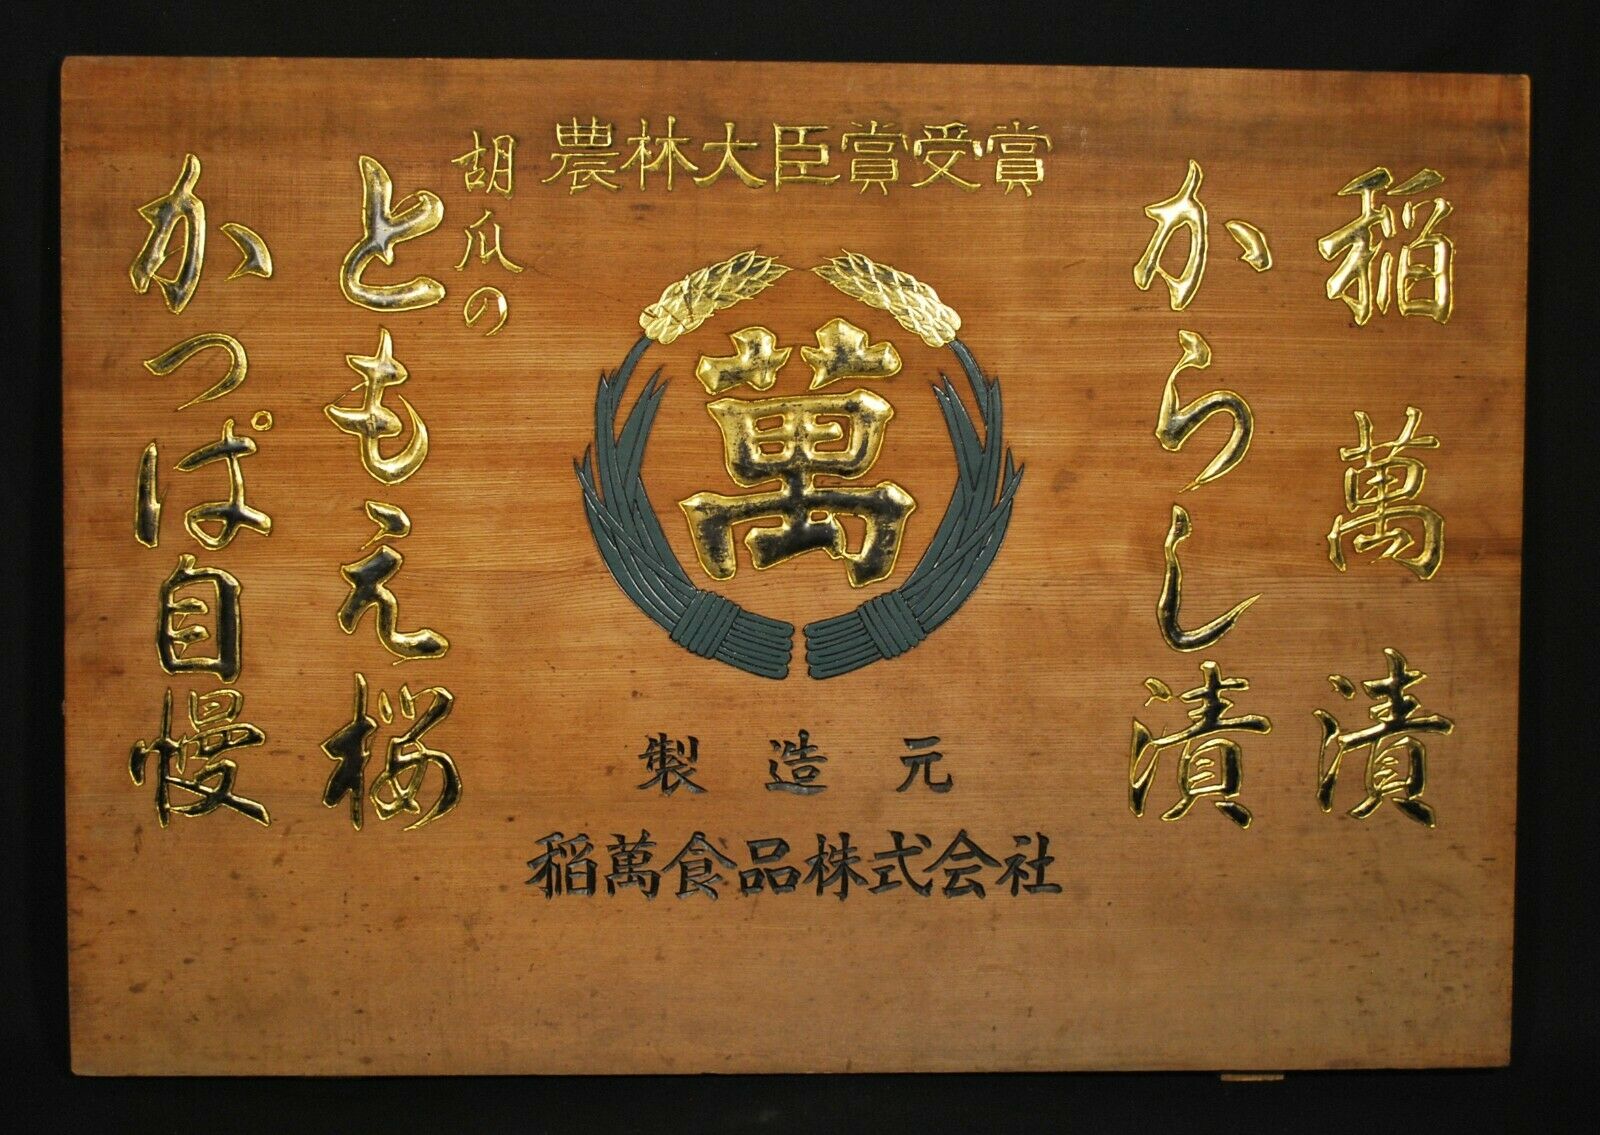 農林大臣賞受賞
稲萬漬
からし漬
萬
胡瓜の
ともえ桜
かっぱ自慢
製造元
稲萬食品株式会社